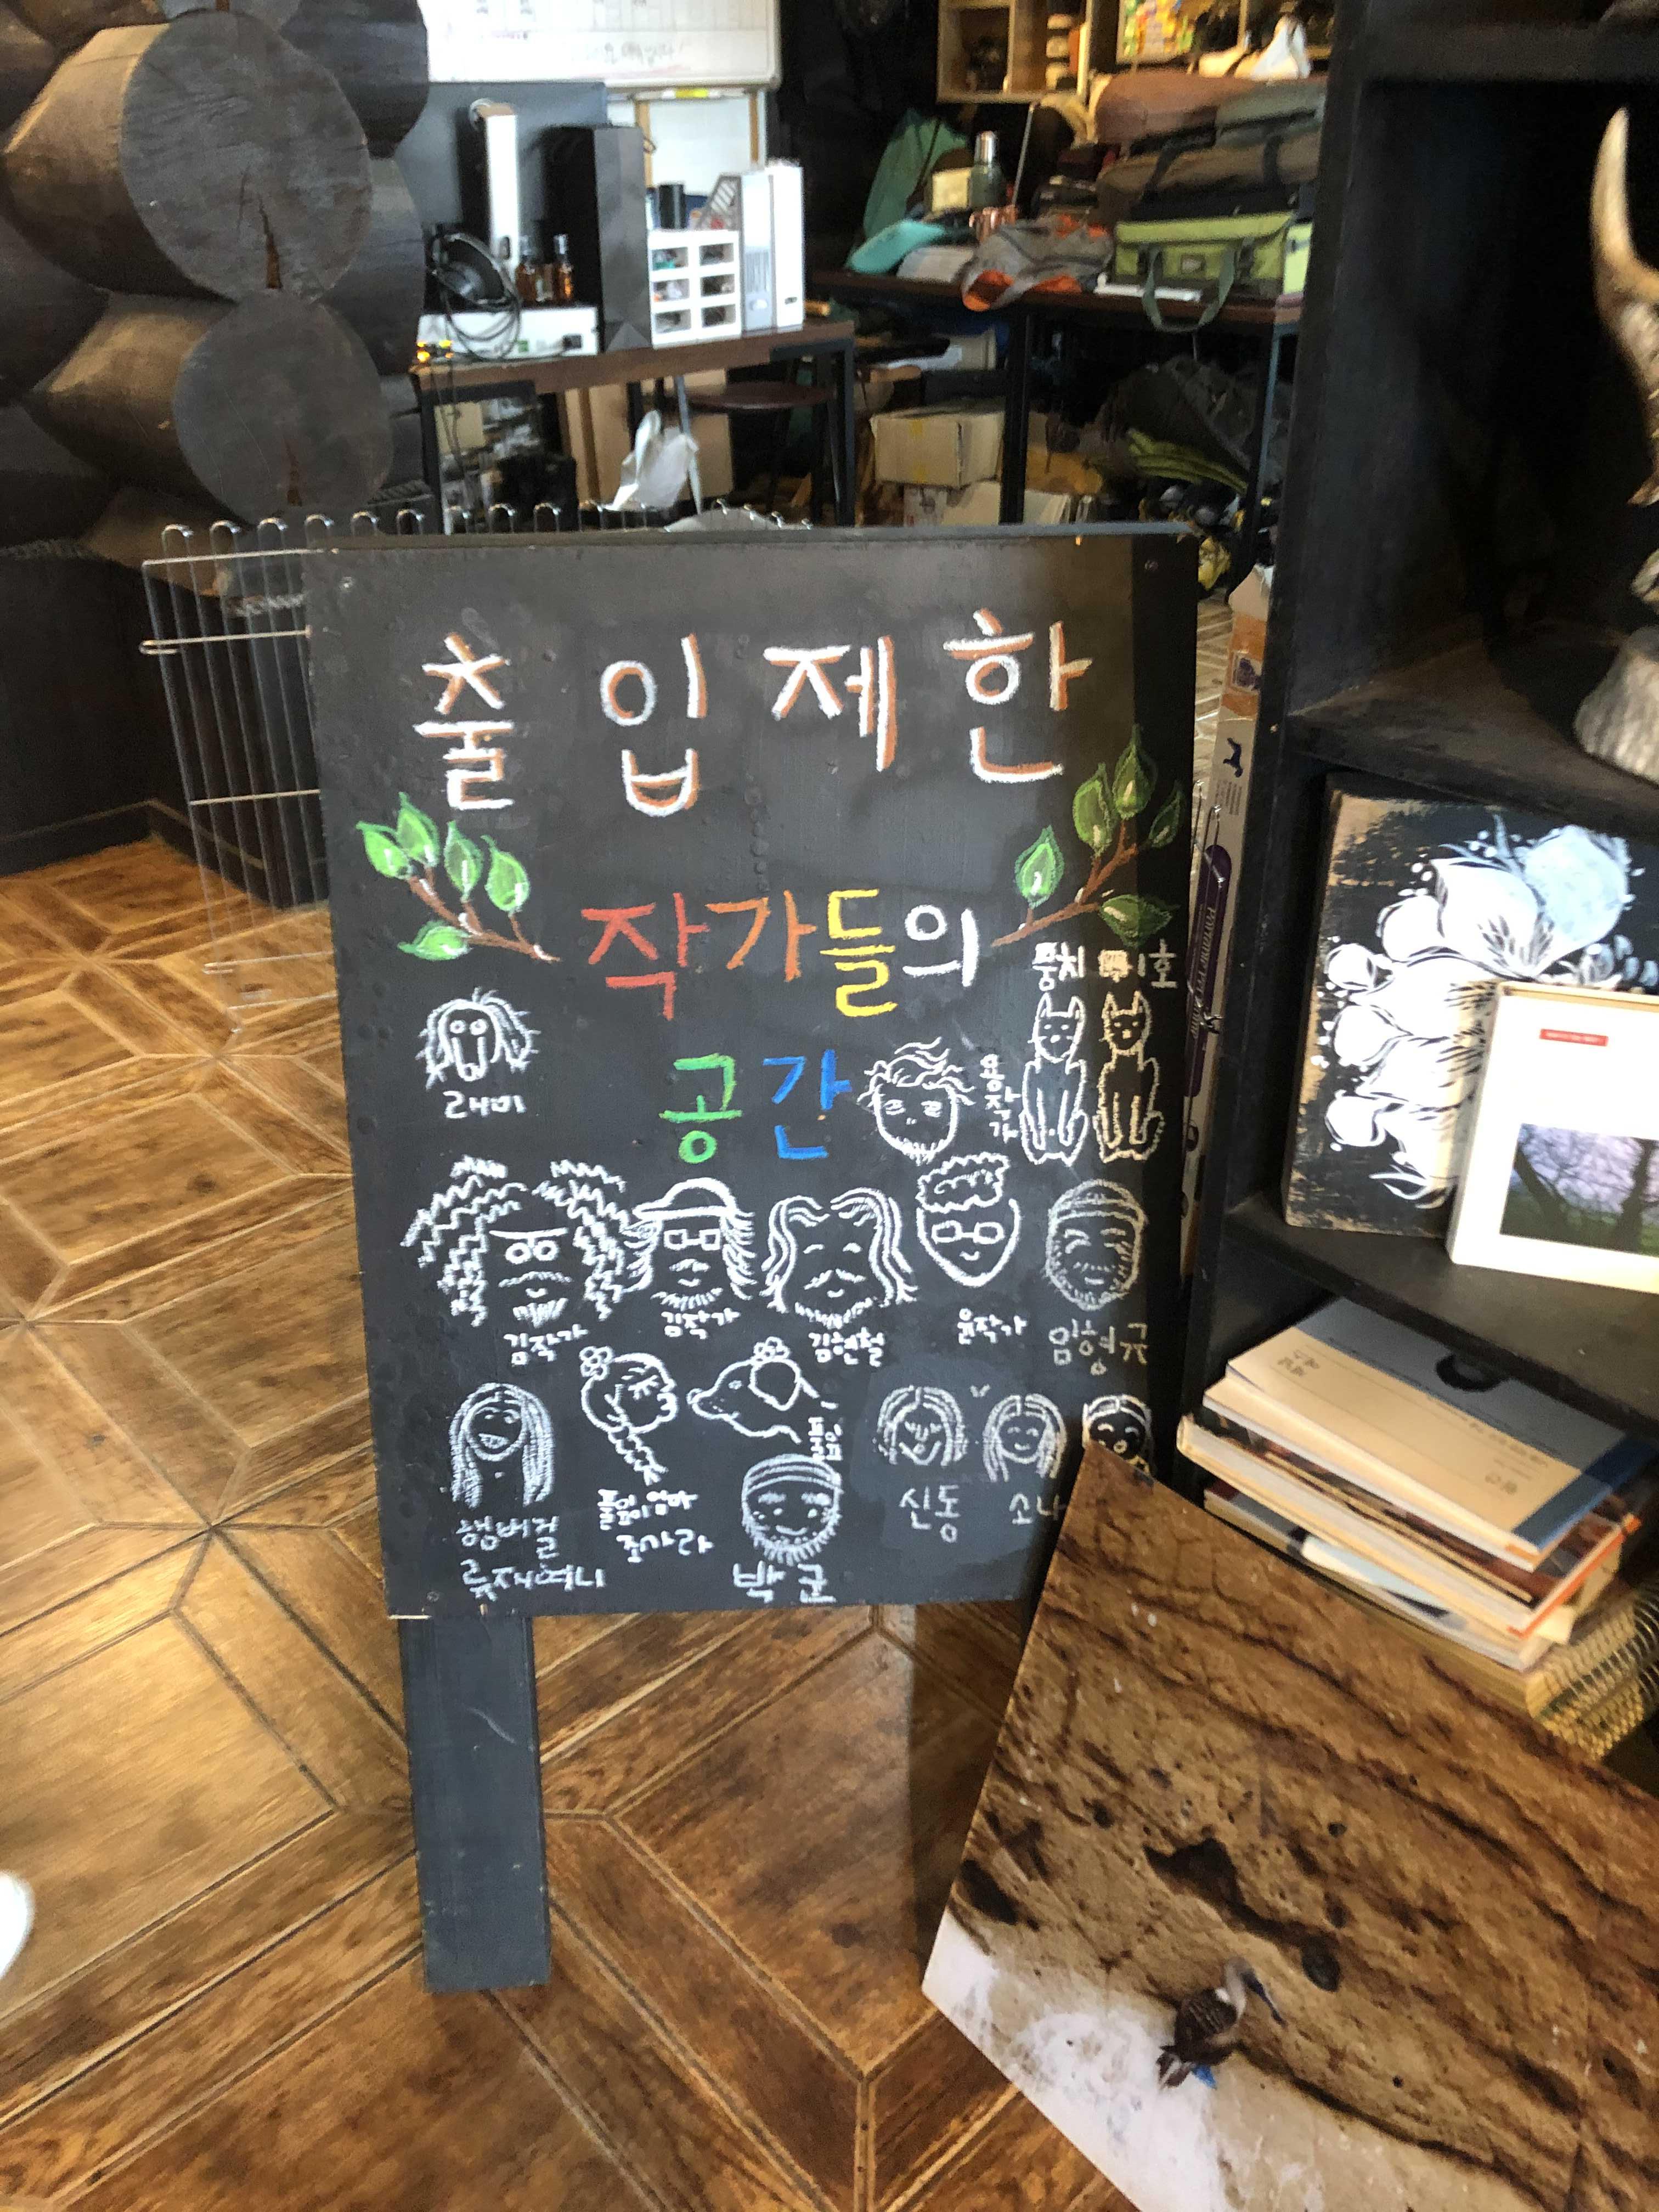 출입제한
작가들의
공간
뭉치 1호
래미
용작가
김작가
김작가
김현철
윤작가
임형규
햄버걸
류재여니
봄이엄마
조가라
박군
신동
소나